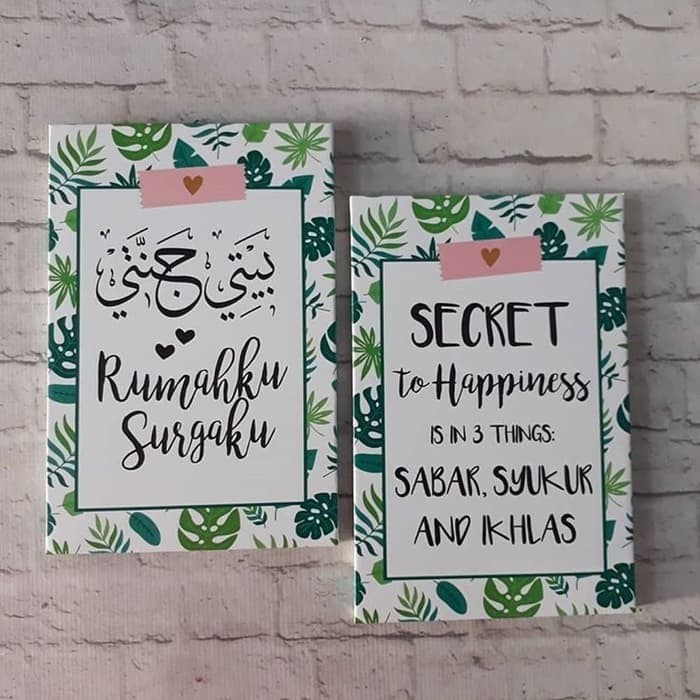 بَيْتِي جَنَّتِي
Rumahku
Surgaku
SECRET
to Happiness
IS IN 3 THINGS:
SABAR, SYUKUR
AND IKHLAS